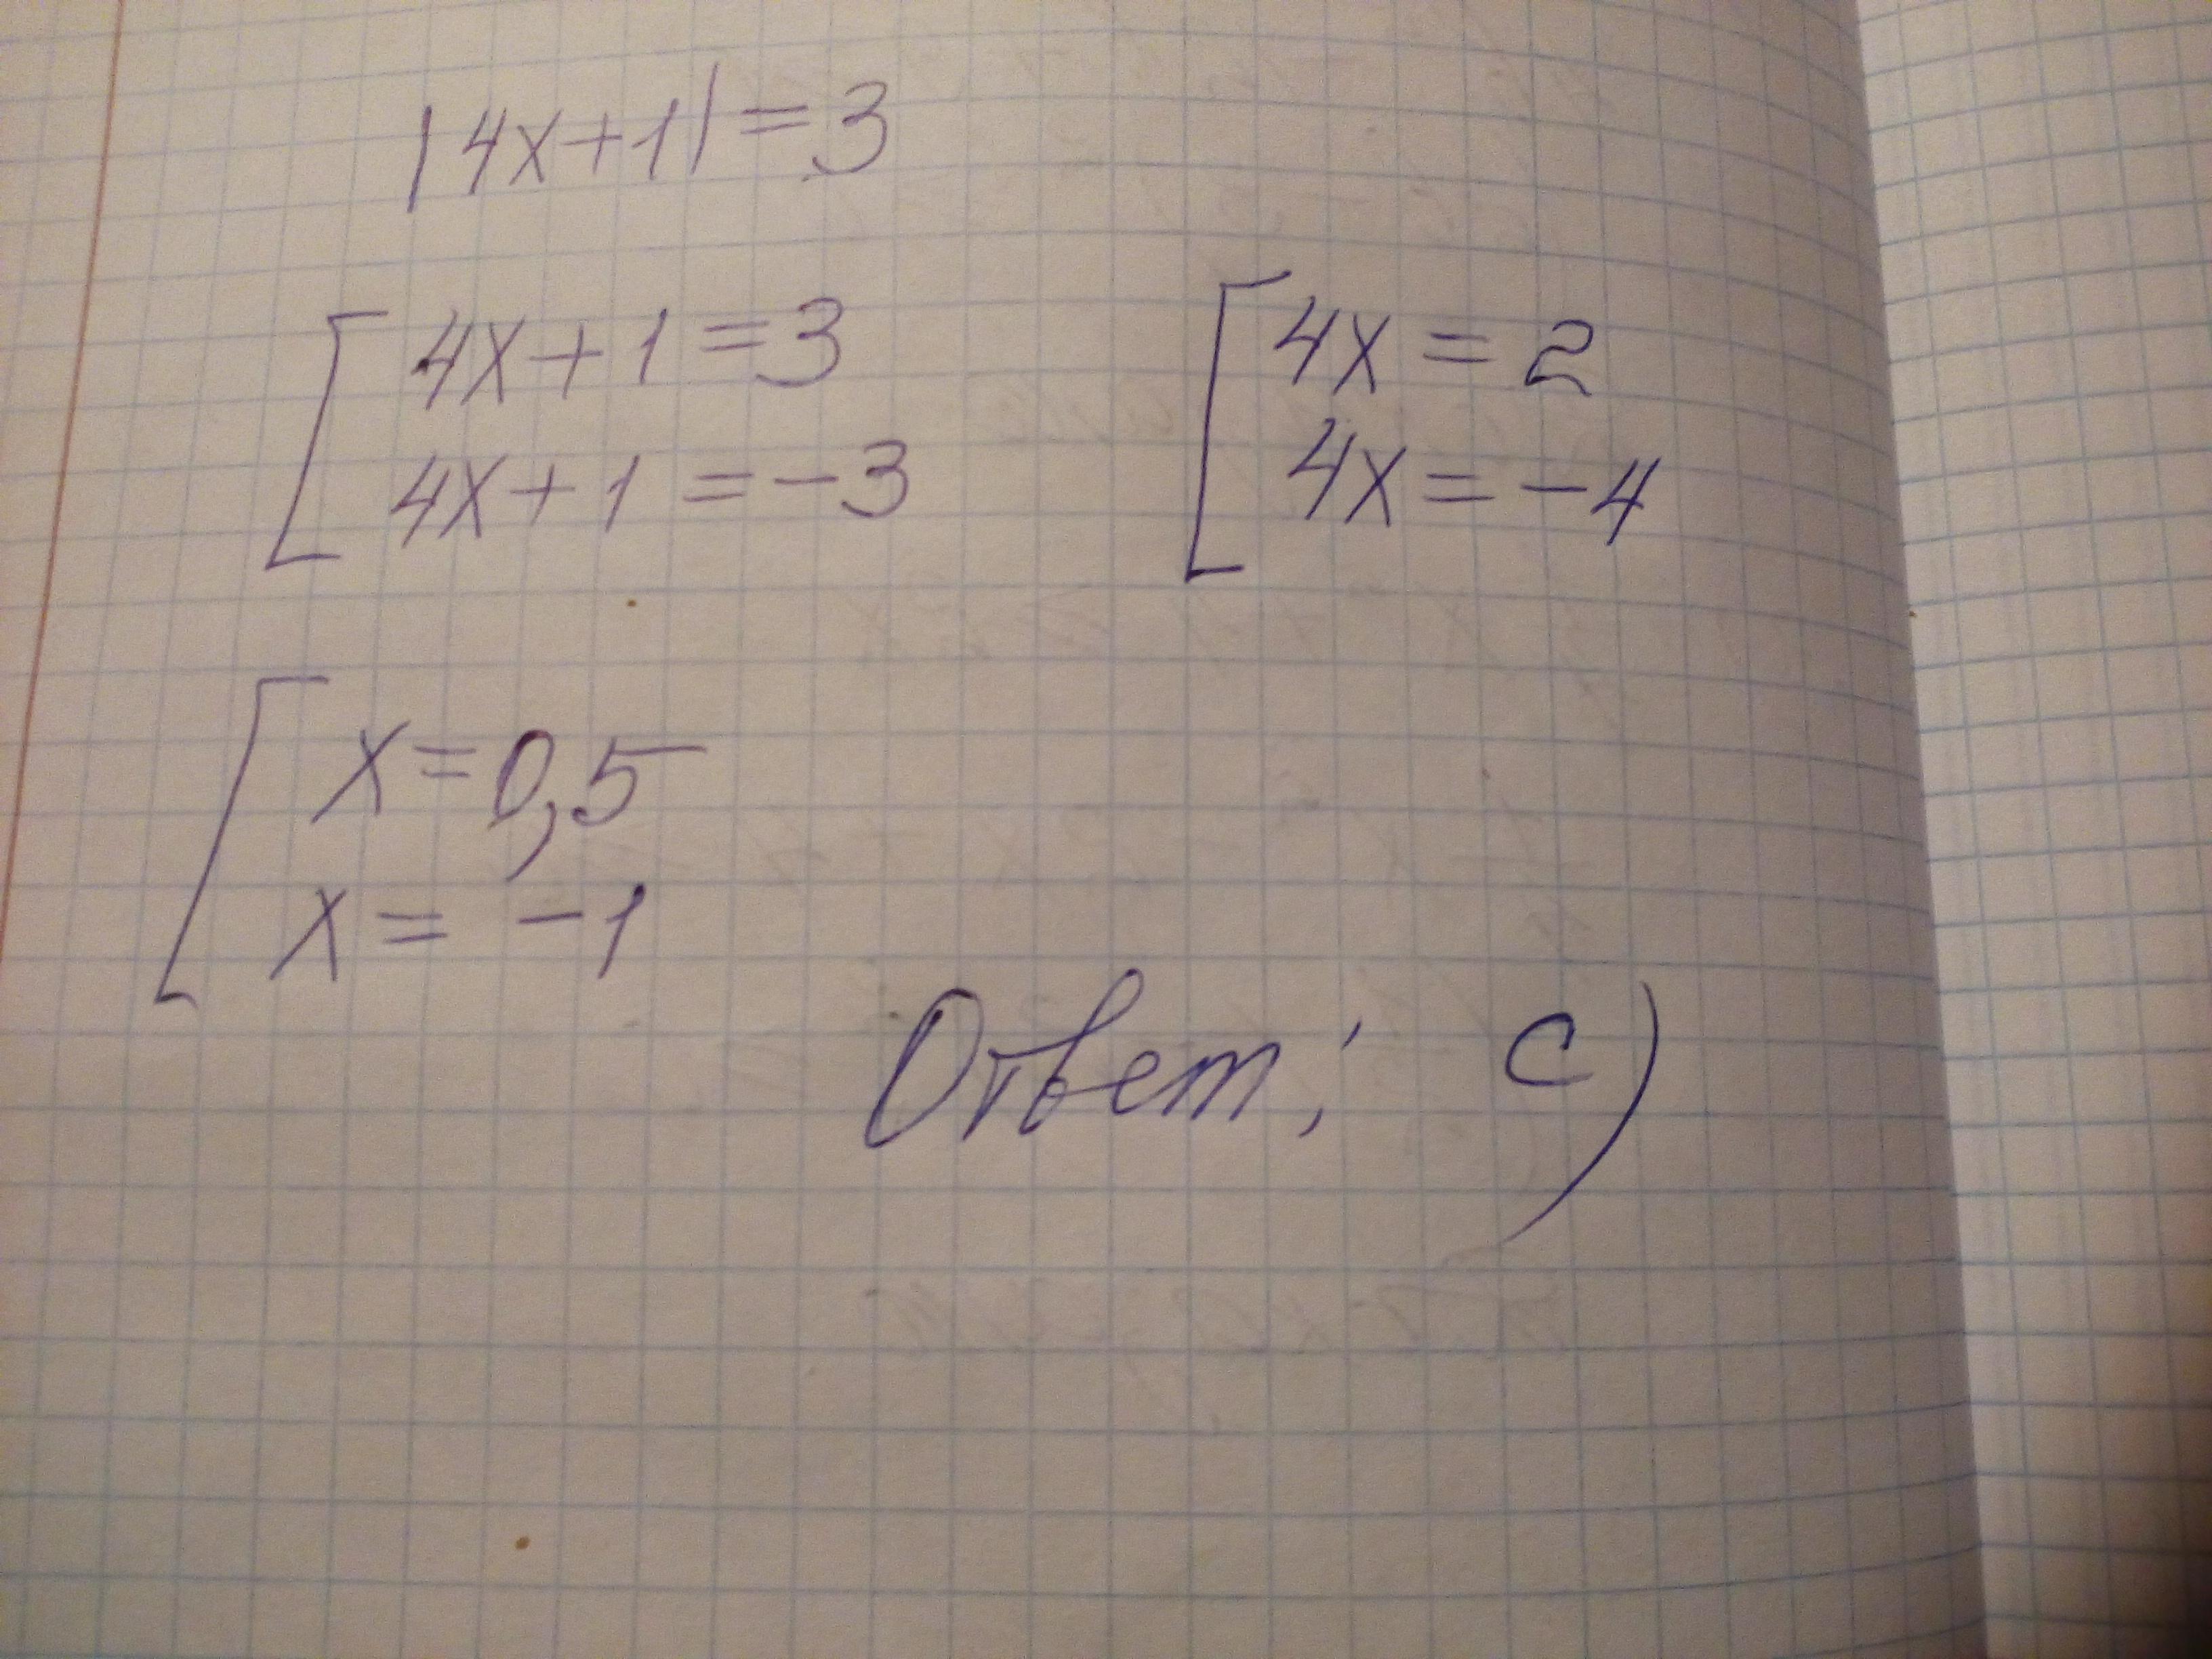 |4x+1|=3
4x+1=3
4x+1=-3
4x=2
4x=-4
x=0,5
x=-1
Ответ: C)